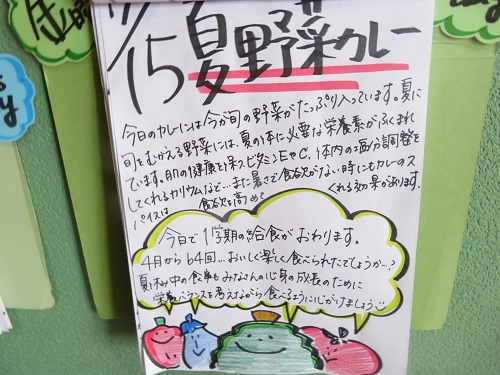 7/15 夏野菜カレー
今日のカレーには今が旬の野菜がたっぷり入っています。夏に
旬をむかえる野菜には、夏の体に必要な栄養素がふくまれ
ています。肌の健康を保つビタミンEやC、体内の塩分調整を
してくれるカリウムなど…また暑さで食欲がない時にもカレーのス
パイスは食欲を高めてくれる効果があります。
今日で1学期の給食がおわります。
4月から64回…おいしく楽しく食べられたでしょうか…?
夏休み中の食事もみなさんの心身の成長のために
栄養バランスを考えながら食べるように心がけましょう